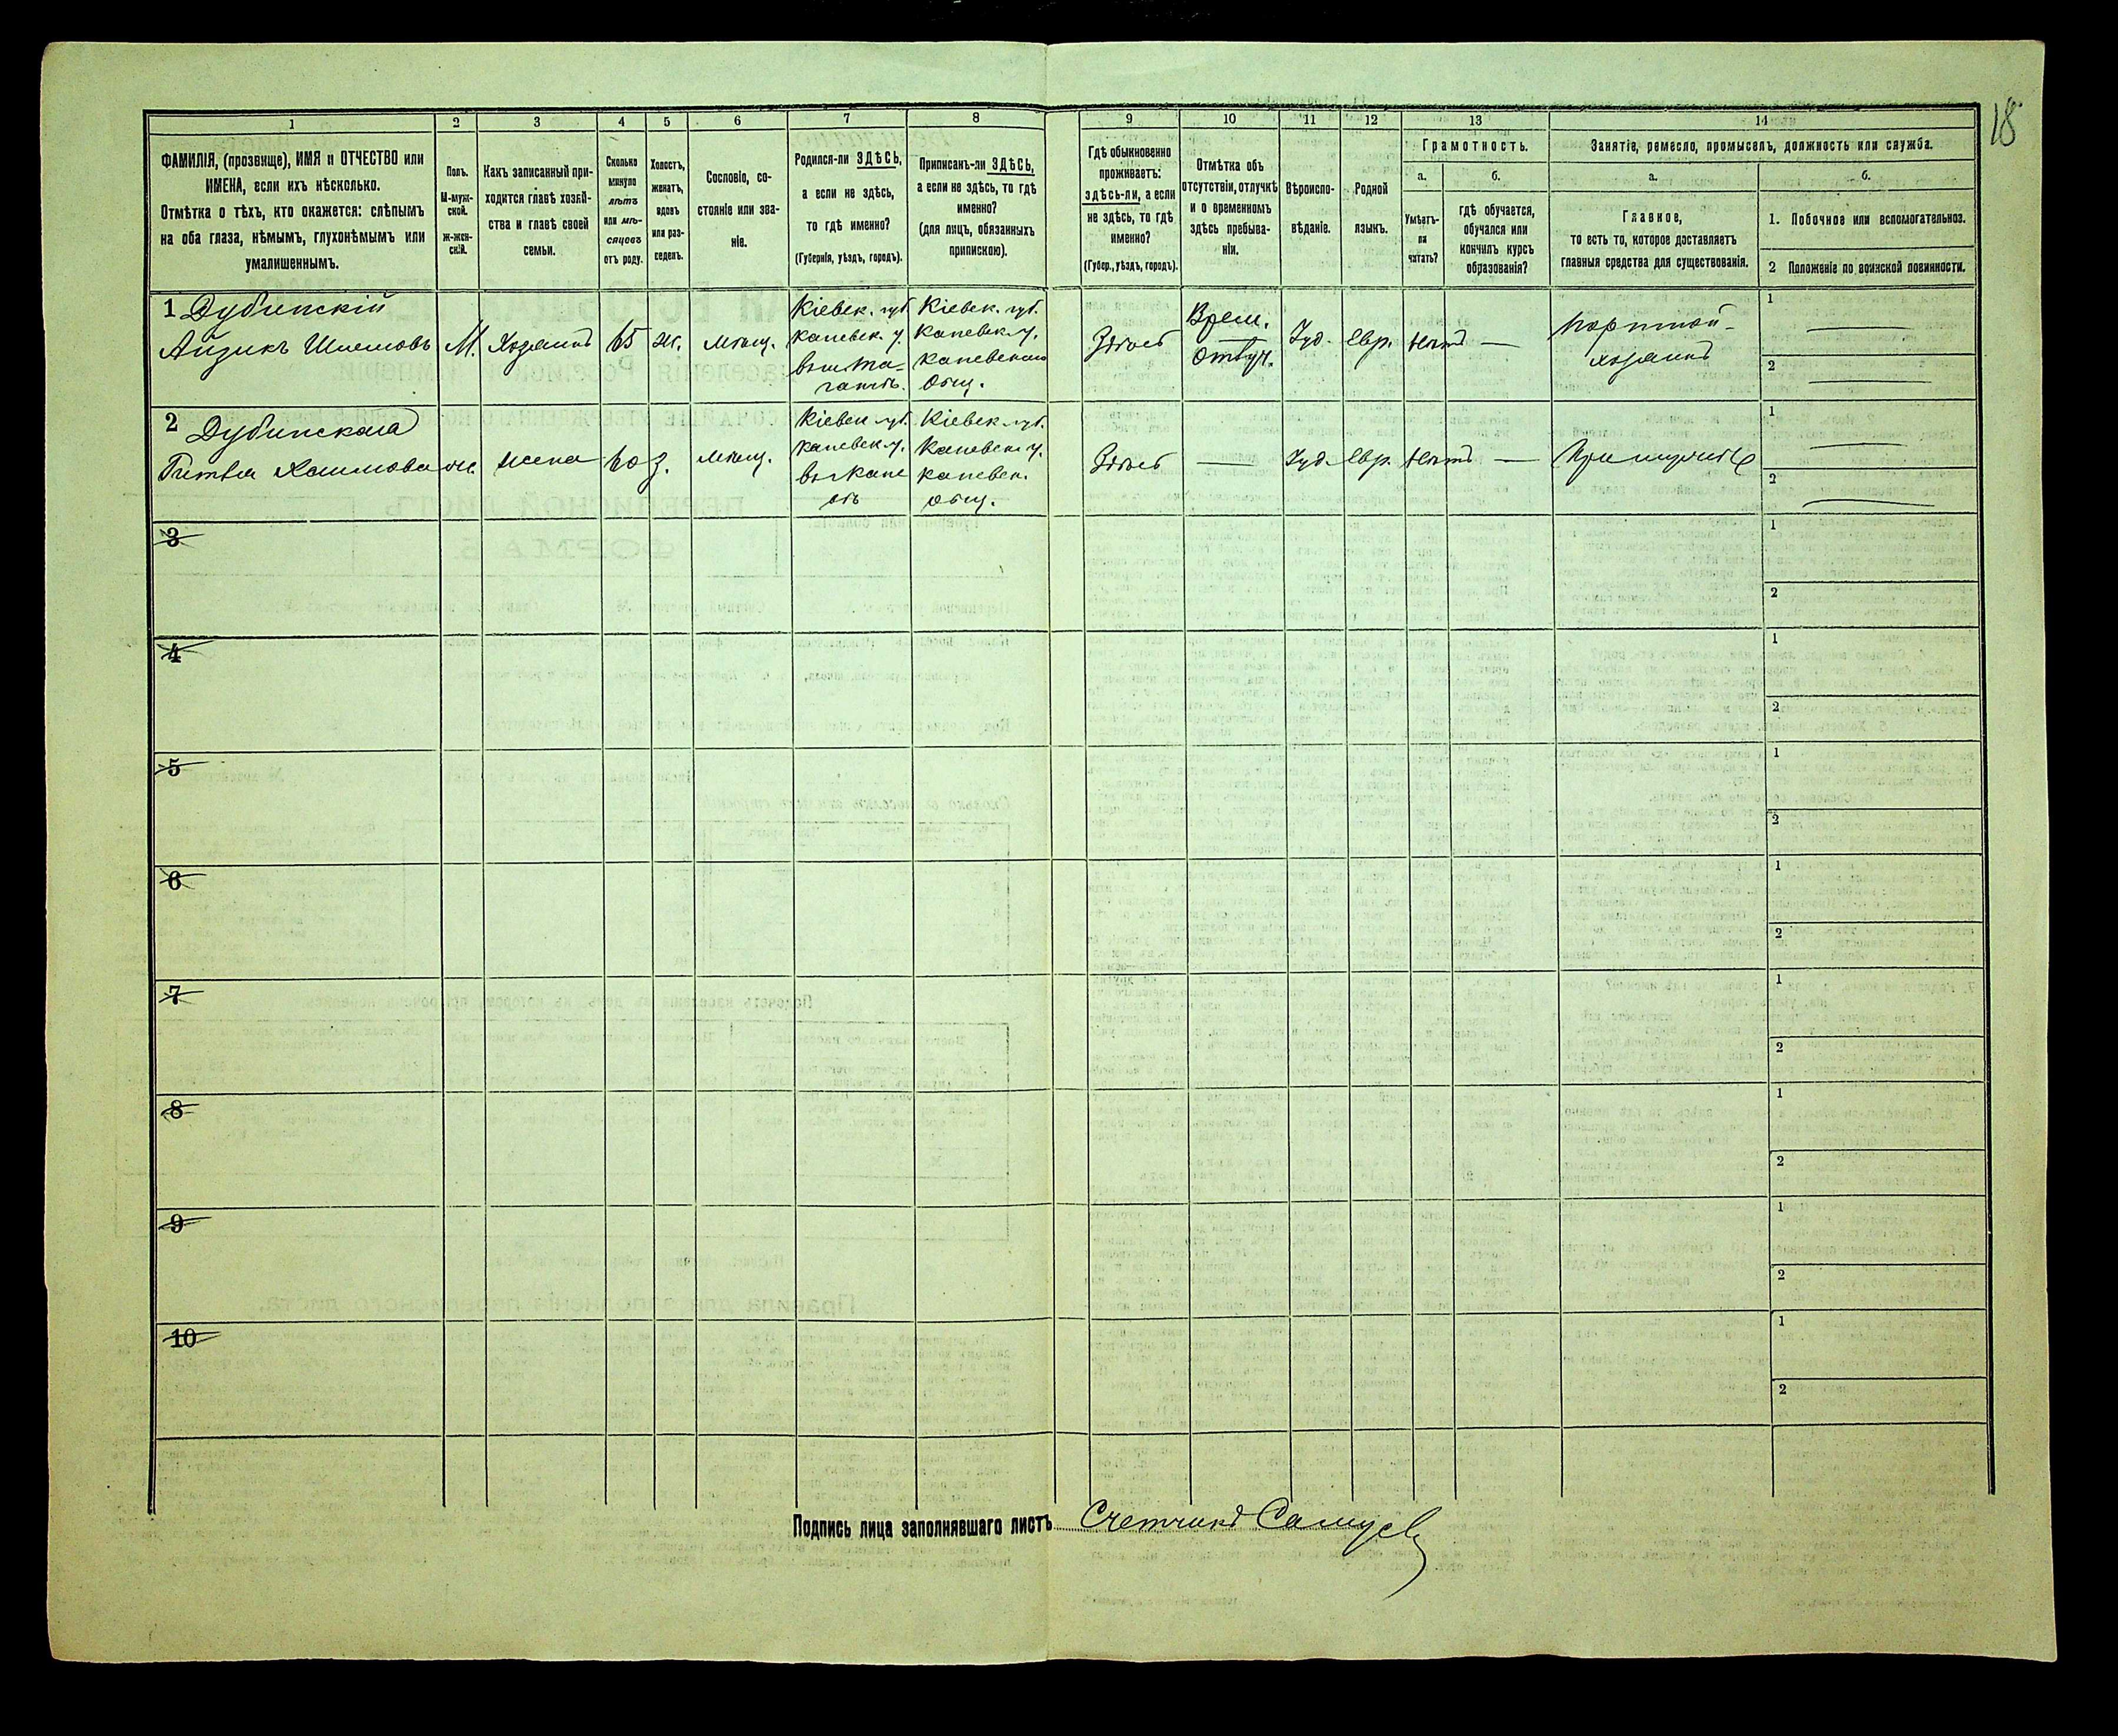 18
1
2
3
4
5
6
7
8
9
10
11
12
13
14
ФАМИЛІЯ, (прозвище), ИМЯ и ОТЧЕСТВО или
ИМЕНА, если ихъ нѣсколько.
Отмѣтка о тѣхъ, кто окажется: слѣпымъ
на оба глаза, нѣмымъ, глухонѣмымъ или
умалишеннымъ.
Полъ.
М-муж-
ской.
ж-жен-
скій.
Какъ записанный при-
ходится главѣ хозяй-
ства и главѣ своей
семьи.
Сколько
минуло
лѣтъ
или мѣ-
сяцевъ
отъ роду.
Холостъ,
женатъ,
вдовъ
или раз-
веденъ.
Сословіе, со-
стояніе или зва-
ніе.
Родился-ли ЗДѢСЬ,
а если не здѣсь,
то гдѣ именно?
(Губернія, уѣздъ, городъ).
Приписанъ-ли ЗДѢСЬ,
а если не здѣсь, то гдѣ
именно?
(для лицъ, обязанныхъ
припискою).
Гдѣ обыкновенно
проживаетъ:
здѣсь-ли, а если
не здѣсь, то гдѣ
именно?
(Губер., уѣздъ, городъ).
Отмѣтка объ
отсутствіи, отлучкѣ
и о временномъ
здѣсь пребыва-
ніи.
Вѣроиспо-
вѣданіе.
Родной
языкъ.
Грамотность.
а.
Умѣетъ-
ли
читать?
б.
гдѣ обучается,
обучался или
кончилъ курсъ
образованія?
Занятіе, ремесло, промыселъ, должность или служба.
а.
Главное,
то есть то, которое доставляетъ
главныя средства для существованія.
б.
1. Побочное или вспомогательное.
2 Положеніе по воинской повинности.
1 Дубинскій
Айзикъ Шмемовъ
М.
Хозяинъ
65
ж.
мѣщ.
Кіевск. губ.
каневск. у.
Кіевск. губ.
каневск. у.
каневскаго
общ.
Здѣсь
Врем.
Отлуч.
Іуд.
Евр.
нѣтъ
—
портной-
хозяинъ
1
—
2
—
2 Дубинская
Хаимова
ж.
жена
60
з.
мѣщ.
Кіевск губ.
каневск. у.
въ кане
вѣ
Кіевск. губ.
каневск. у.
каневск.
общ.
Здѣсь
—
Іуд.
Евр.
нѣтъ
—
При мужѣ
1
—
2
—
3
1
2
4
1
2
5
1
2
6
1
2
7
1
2
8
1
2
9
1
2
10
1
2
Подпись лица заполнявшаго листъ Счетчикъ